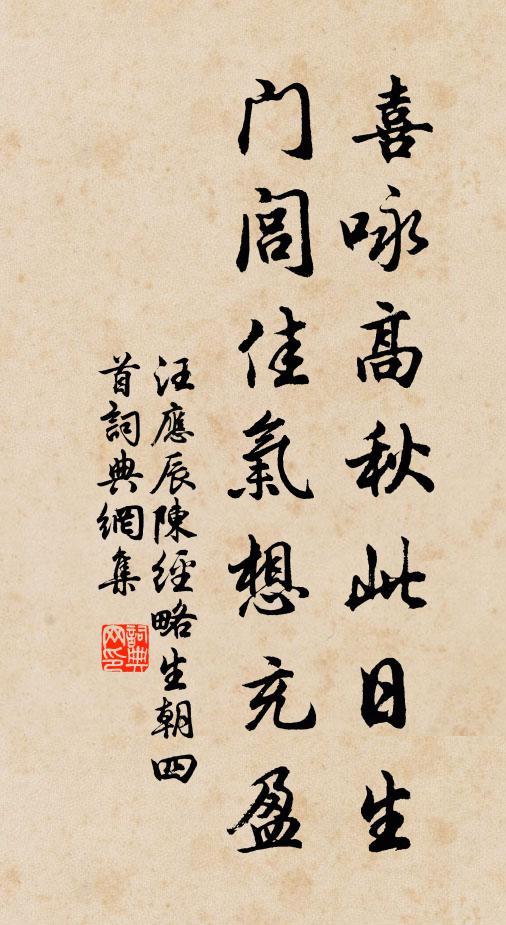 喜咏高秋此日生
门闾佳氣想充盈
汪應辰陳經略生朝四
首詞典網集
詞典网印